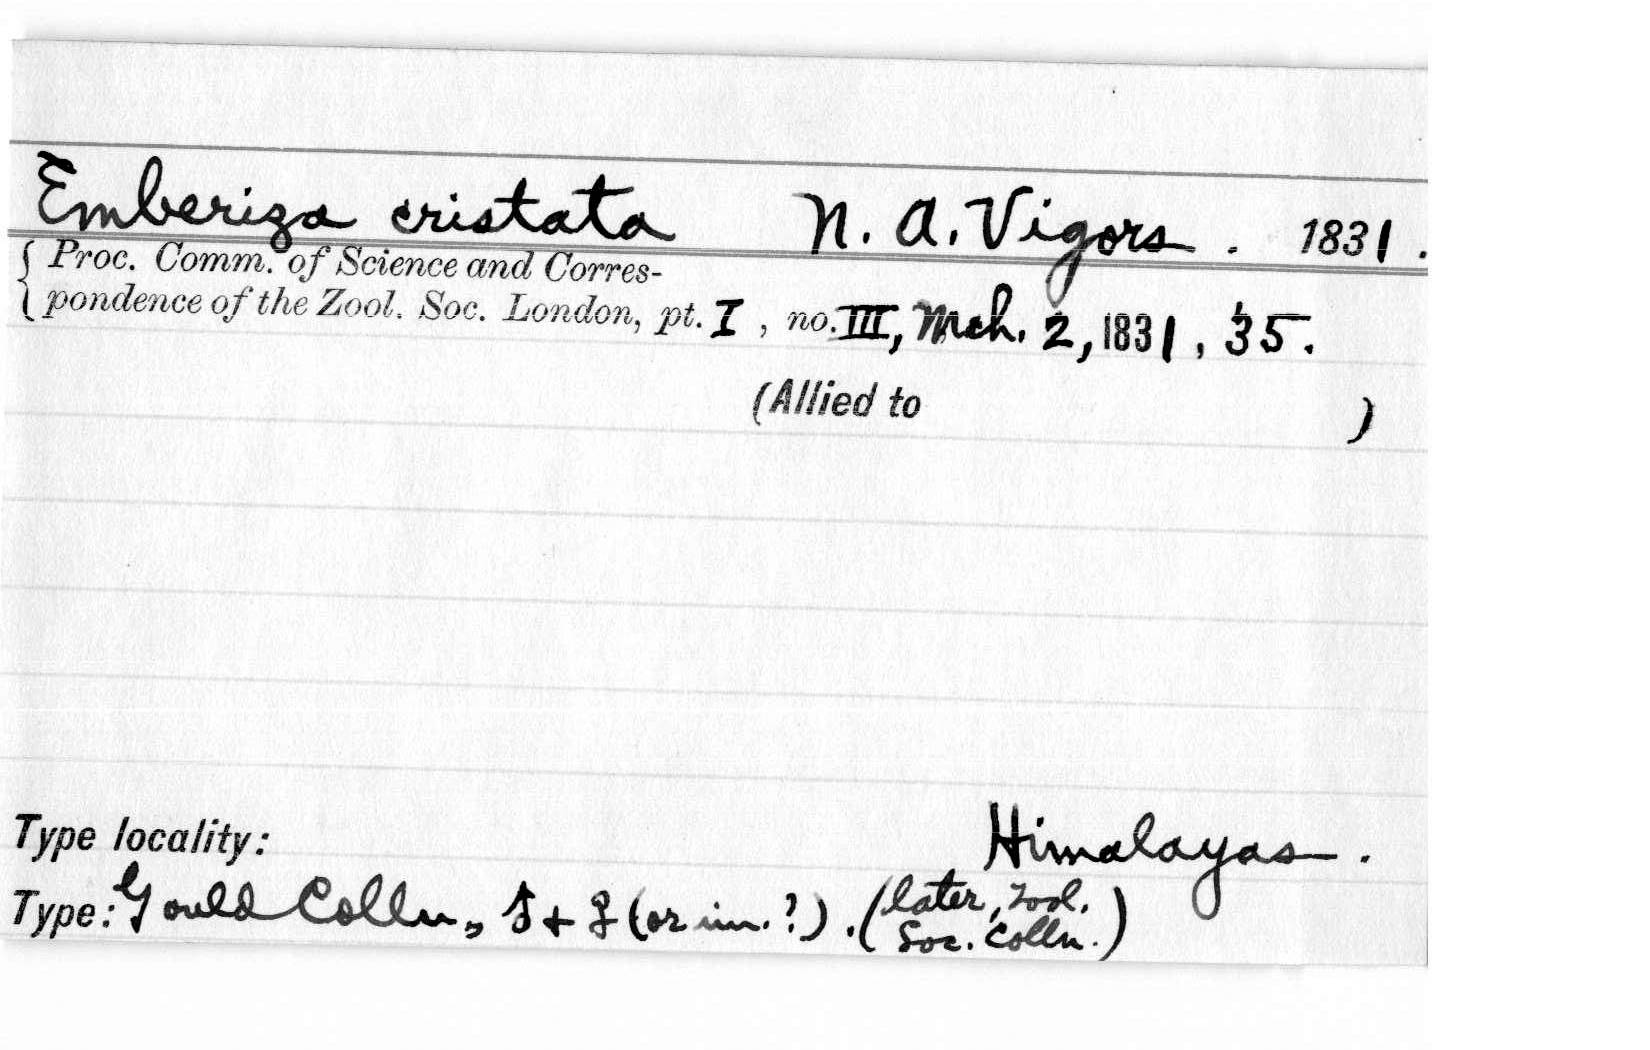 Emberiza cristata N. A. Vigors. 1831.
{ Proc. Comm. of Science and Corres-
pondence of the Zool. Soc. London, pt. I, no. III, Mch. 2, 1831, 35.
(Allied to )
Type locality: Himalayas.
Type: Gould Colln., ♂ + ♀ (or im.?). (later, Zool.
Soc. Colln.)